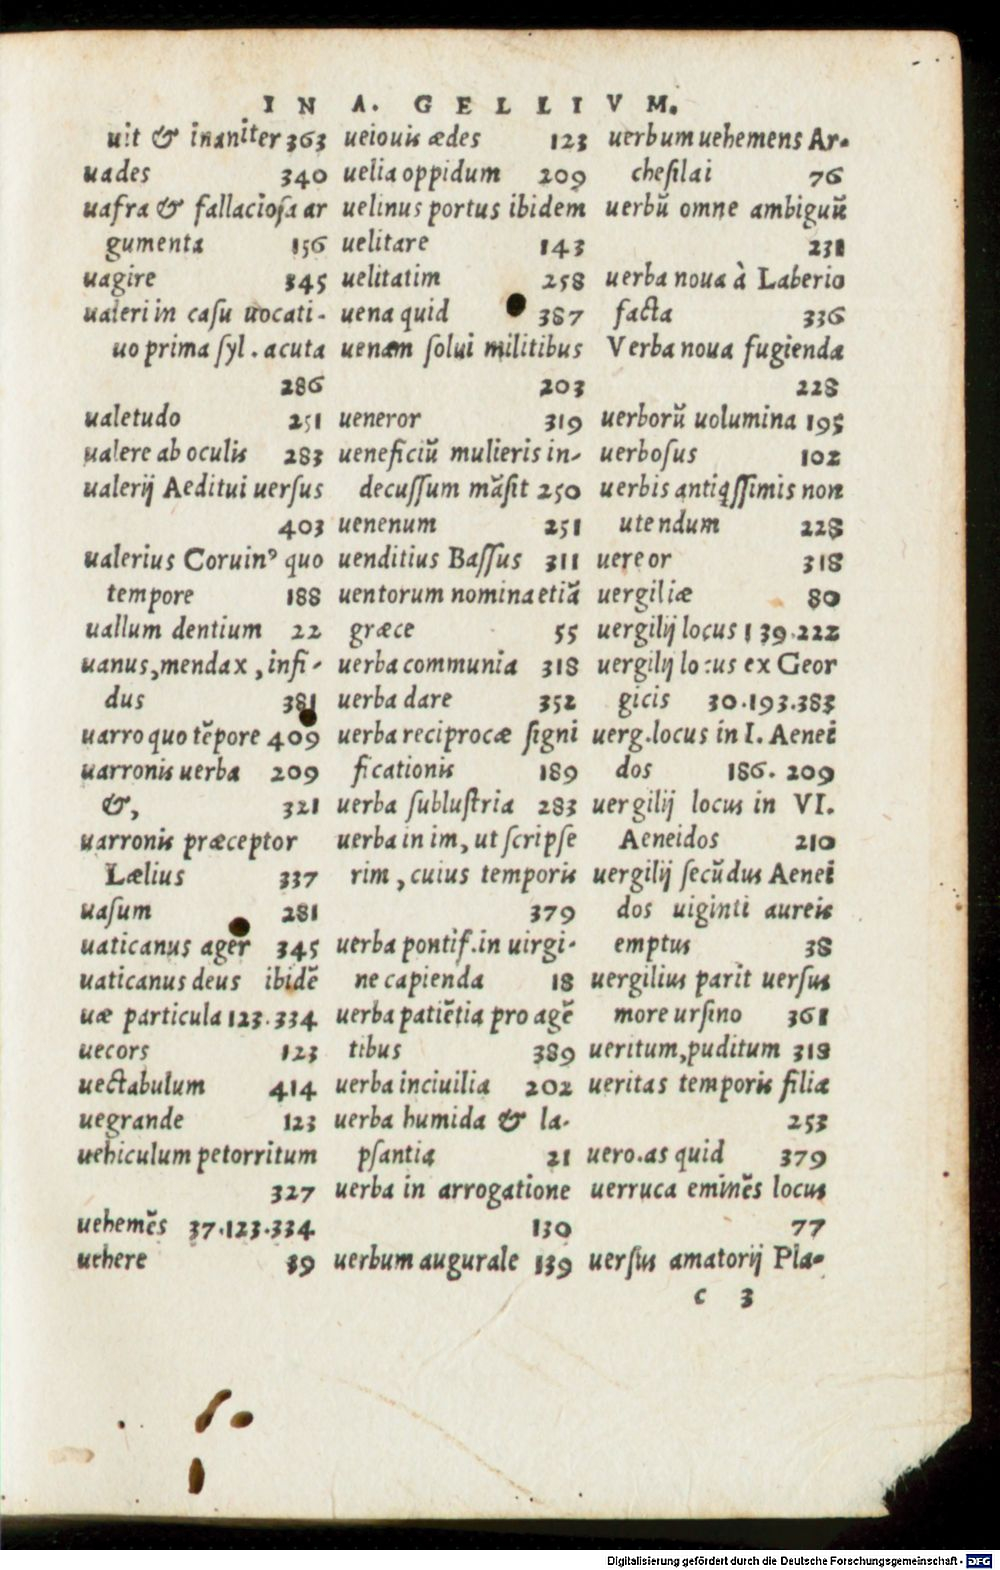 IN A. GELLIVM.
uit & inaniter 363
uades 340
uafra & fallaciosa ar
gumenta 156
uagire 345
ualeri in casu uocati-
uo prima syl. acuta
286
ualetudo 251
ualere ab oculis 283
ualerij Aeditui uersus
403
ualerius Coruinꝰ quo
tempore 188
uallum dentium 22
uanus, mendax, infi-
dus 381
uarro quo tēpore 409
uarronis uerba 209
&, 321
uarronis præceptor
Lælius 337
uasum 281
uaticanus ager 345
uaticanus deus ibidē
uæ particula 123.334
uecors 123
uectabulum 414
uegrande 123
uehiculum petorritum
327
uehemēs 37.123.334
uehere 39
ueiouis ædes 123
uelia oppidum 209
uelinus portus ibidem
uelitare 143
uelitatim 258
uena quid 387
uenam solui militibus
203
ueneror 319
ueneficiū mulieris in-
decussum māsit 250
uenenum 251
uenditius Bassus 311
uentorum nomina etiā
græce 55
uerba communia 318
uerba dare 352
uerba reciprocæ signi
ficationis 189
uerba sublustria 283
uerba in im, ut scripse
rim, cuius temporis
379
uerba pontif. in uirgi-
ne capienda 18
uerba patiētia pro agē
tibus 389
uerba inciuilia 202
uerba humida & la-
psantia 21
uerba in arrogatione
130
uerbum augurale 139
uerbum uehemens Ar-
chesilai 76
uerbū omne ambiguū
231
uerba noua à Laberio
facta 336
Verba noua fugienda
228
uerborū uolumina 195
uerbosus 102
uerbis antiqssimis non
utendum 228
uereor 318
uergiliæ 80
uergilij locus 139.222
uergilij locus ex Geor
gicis 30.193.383
uerg. locus in I. Aenei
dos 186. 209
uergilij locus in VI.
Aeneidos 210
uergilij secūdus Aenei
dos uiginti aureis
emptus 38
uergilius parit uersus
more ursino 361
ueritum, puditum 318
ueritas temporis filia
253
uero. as quid 379
uerruca eminēs locus
77
uersus amatorij Pla-
c 3
Digitalisierung gefördert durch die Deutsche Forschungsgemeinschaft - DFG